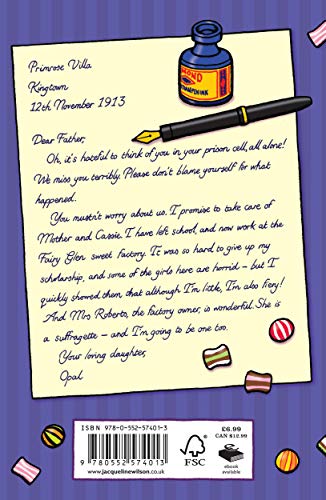 MOND
STAMPEN INK
Primrose Villa
Kingtown
12th November 1913
Dear Father,
Oh, it's hateful to think of you in your prison cell, all alone!
We miss you terribly. Please don't blame yourself for what
happened.
You mustn't worry about us. I promise to take care of
Mother and Cassie. I have left school, and now work at the
Fairy Glen sweet factory. It was so hard to give up my
scholarship, and some of the girls here are horrid – but I
quickly showed them that although I'm little, I'm also fiery!
And Mrs Roberts, the factory owner, is wonderful. She is
a suffragette – and I'm going to be one too.
Your loving daughter,
Opal
ISBN 978-0-552-57401-3
9 780552 574013
www.jacquelinewilson.co.uk
FSC
£6.99
CAN $12.99
ebook
available